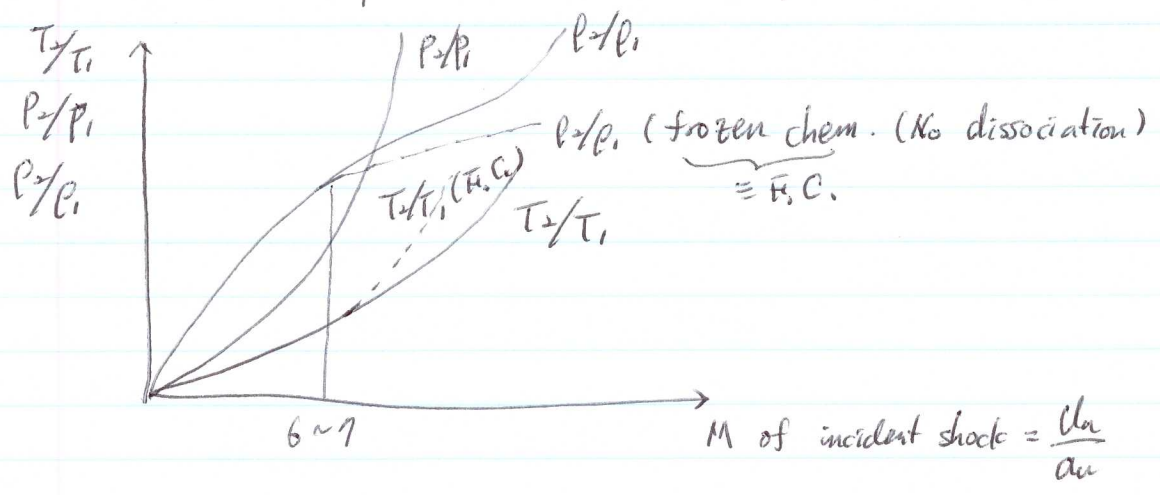 T₂/T₁
P₂/P₁
ρ₂/ρ₁
P₂/P₁
ρ₂/ρ₁
ρ₂/ρ₁ (frozen chem. (No dissociation)
≡ F.C.
T₂/T₁ (F.C.)
T₂/T₁
6~7
M of incident shock = uₙ/aᵤ